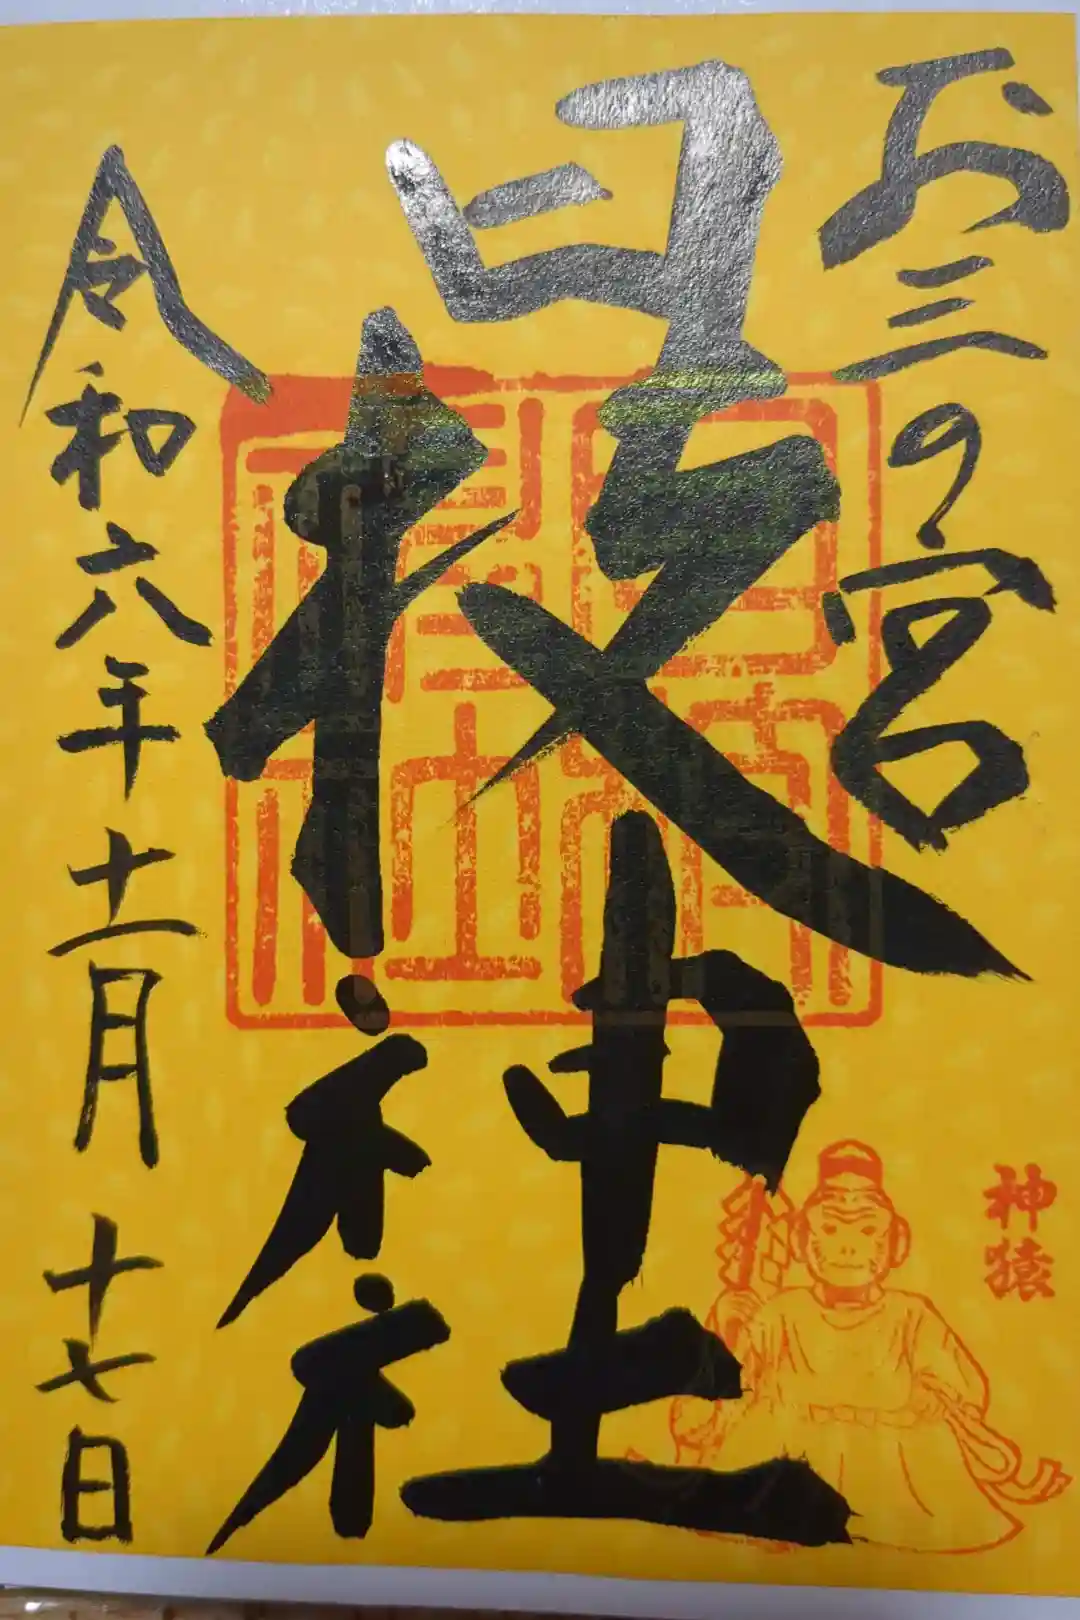 お三の宮
日枝神社
令和六年十一月十七日
日枝神社
神猿